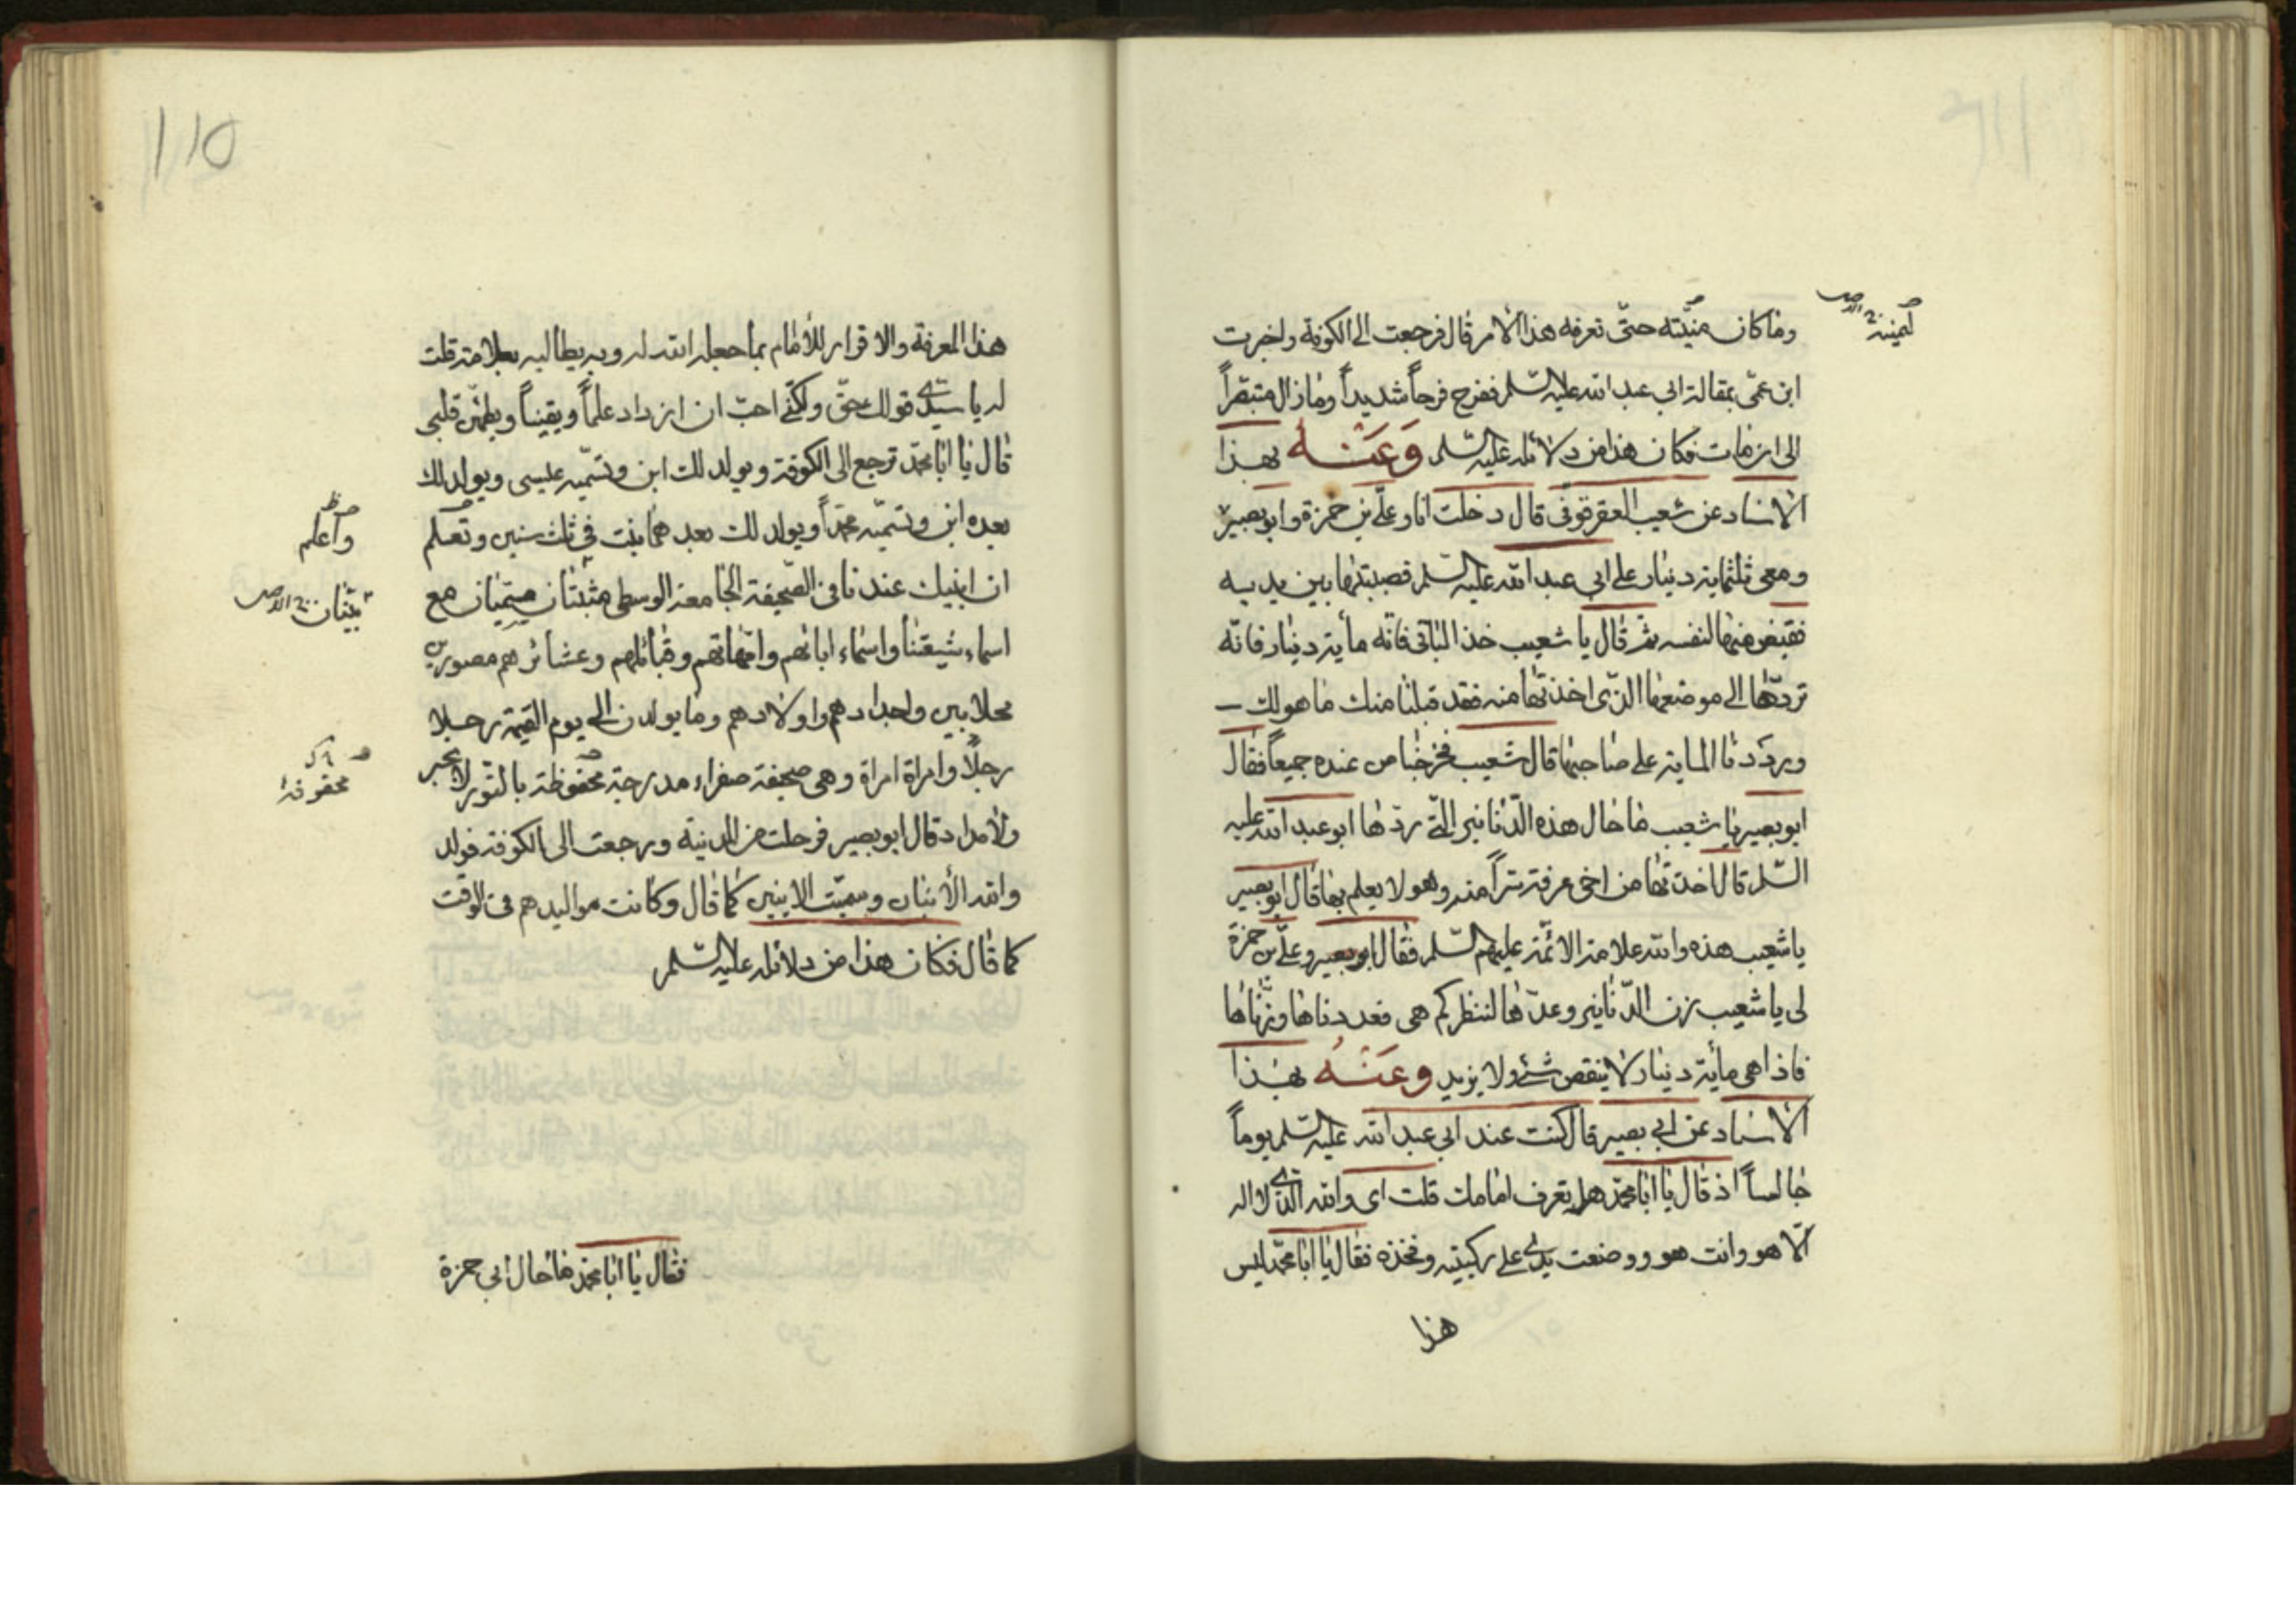 وما كان منيّته حتّى تعرفه هذا الامر قال فرجعت الى الكوفة واخبرت
ليميته
ابن عمّى بمقالة ابي عبد الله عليه السّلم ففرح فرحاً شديداً وما زال متبصّراً
الى ان مات فكان هذا من دلائله عليه السّلم وَعَنْهُ بهذا
الاسناد عن شعيب العقرقوفى قال دخلت انا وعلّى بن حمزة وابو بصير
ومعى ثلثماية دينار على ابي عبد الله عليه السّلم فصببتها بين يديه
فقبض منها لنفسه ثم قال يا شعيب خذ الباقى فانّه مأية دينار فانّه
تردّها الى موضعها الذّى اخذتها منه فقد قبلنا منك ما هو لك
ورددنا الماية على صاحبها قال شعيب فخرجنا من عنده جميعاً فقال
ابو بصير يا شعيب ما حال هذه الدّنانير الّتى ردّها ابو عبد الله عليه
السّلم قال اخذتها من اخى عرفة سراً منه وهو لا يعلم بها قال ابو بصير
يا شعيب هذه والله علامة الائمّة عليهم السّلم فقال ابو بصير وعلّى بن حمزة
لى يا شعيب زن الدّنانير وعدّها لننظر كم هى فعددناها ووزنّاها
فاذا هى مأية دينار لا ينقص شئ ولا يزيد وعَنْهُ بهذا
الاسناد عن ابي بصير قال كنت عند ابي عبد الله عليه السّلم يوماً
جالساً اذ قال يا ابا محمّد هل تعرف امامك قلت اى والله الّذى لا اله
الّا هو وانت هو ووضعت يدى على ركبته وفخذه فقال يا ابا محمّد ليس
هذا
110
هذا المعرفة والاقرار للأمام بما جعله الله له وبه يطالبه بعلامة قلت
له يا سيّدى قولك حقّ ولكنّى احبّ ان ازداد علماً ويقيناً ويطمئن قلبى
قال يا ابا محمّد ترجع الى الكوفة ويولد لك ابن وتسمّيه عيسى ويولد لك
بعده ابن وتسميّه محمّداً ويولد لك بعدهما بنت فى ثلث سنين وتعلم
واعلم
ان ابنيك عندنا فى الصّحيفة الجامعة الوسطى مثبتان مسمّيان مع
اسماء شيعتنا واسماء ابائهم وامّهاتهم وقبائلهم وعشائرهم مصورين
محلا بين واجدادهم واولادهم وما يولدن الى يوم القيمة رجلا
رجلًا وامراة امراة وهى صحيفة صفراء مدرجة محفوظة بالنّور لا بحبر
محفوفة
ولا مداد قال ابو بصير فرحلت من المدينة ورجعت الى الكوفة فولد
والله الأبنان وسميّت الابنين كما قال وكانت مواليدهم فى الوقت
كما قال فكان هذا من دلائله عليه السّلم
فقال يا ابا محمّد ما حال ابى حمزة